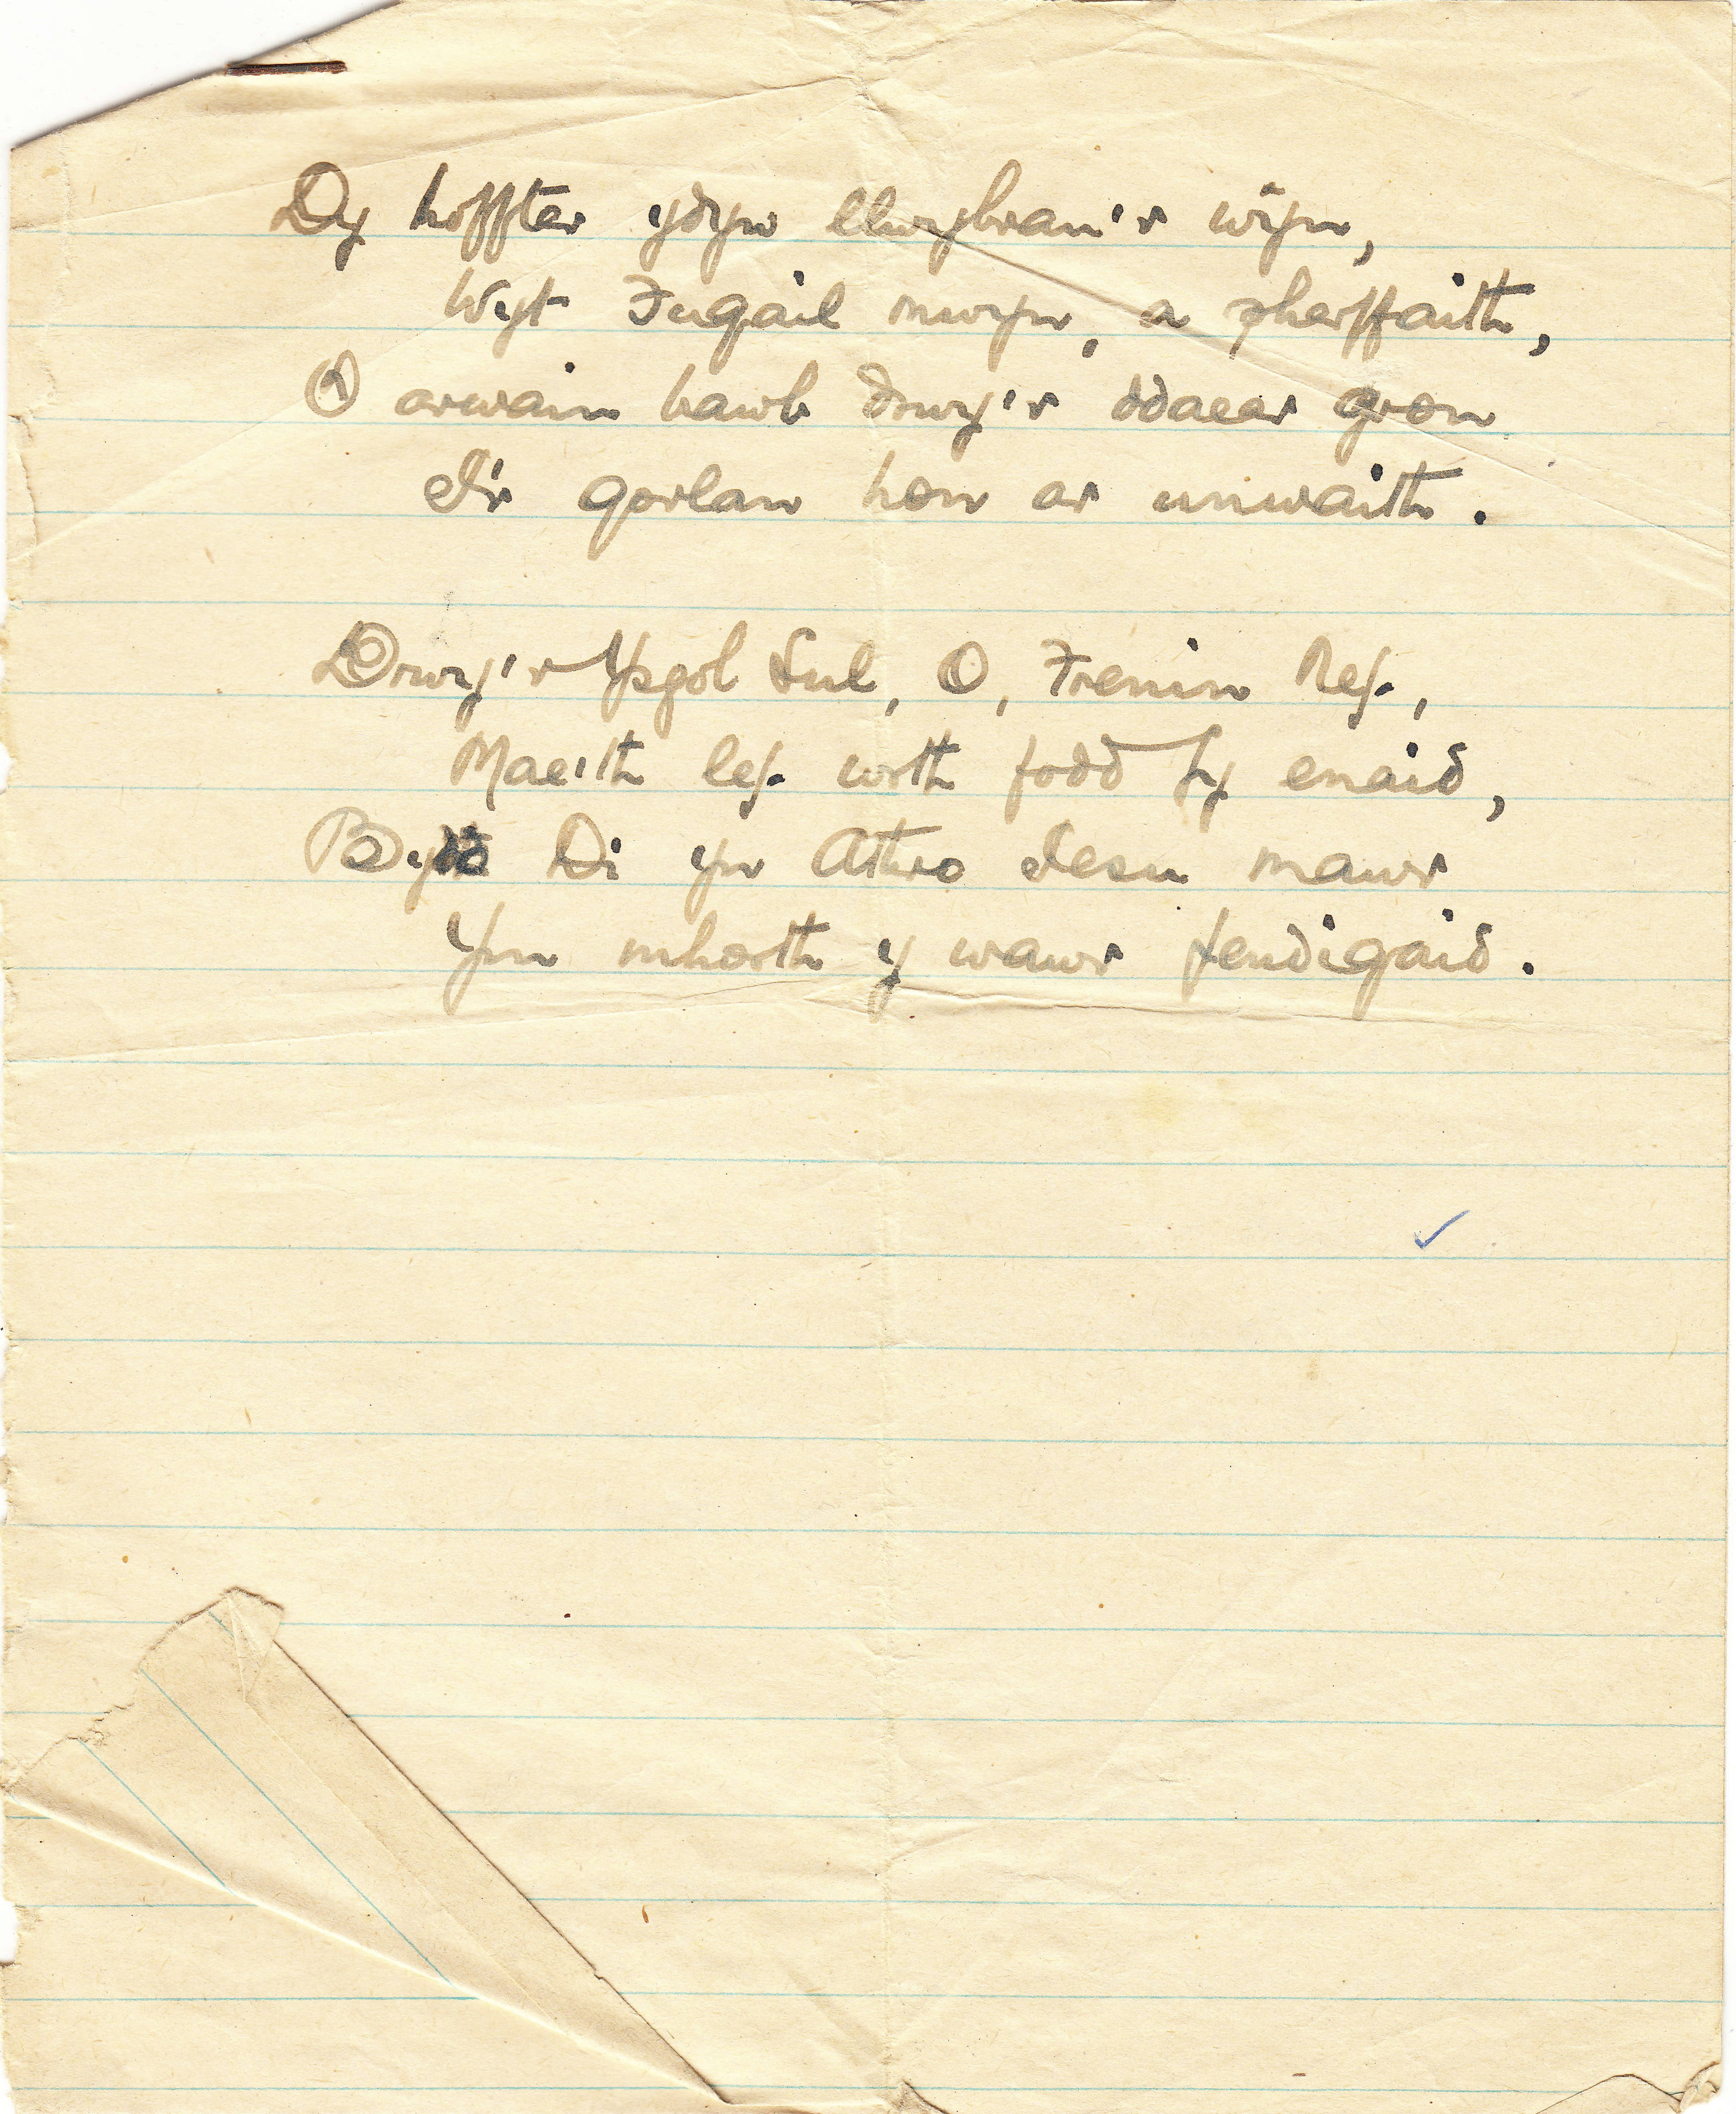 Dy hoffter ydyw llwybrau'r ŵyn,
Wyt Fugail mwyn, a pherffaith,
O arwain bawb drwy'r ddaear gron
I'r gorlan hon ar unwaith.
Drwy'r Ysgol Sul, O, Frenin Nef,
Mae'th lef wrth fodd fy enaid,
Bydd Di yn Athro Iesu mawr
Ym mhorth y wawr fendigaid.